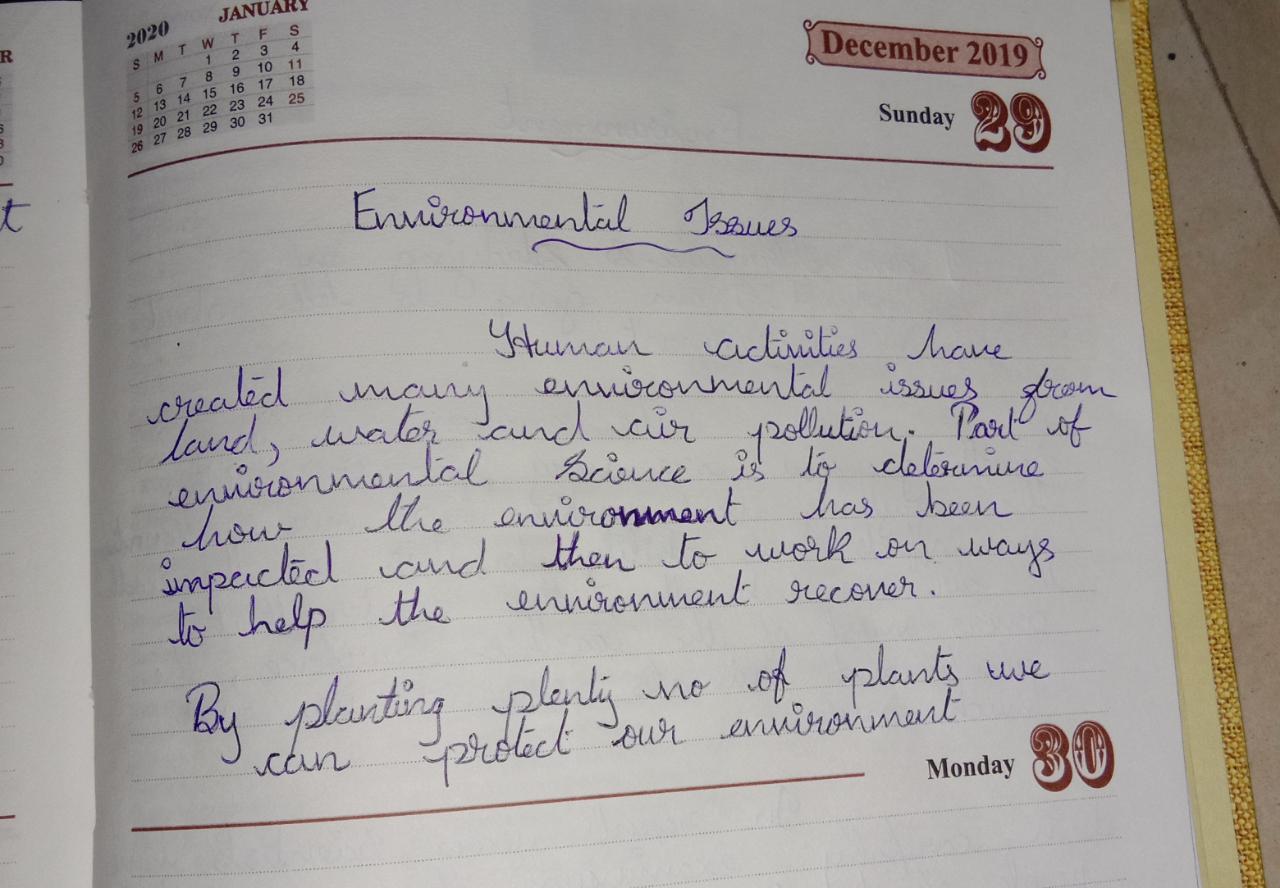 2020 JANUARY
S M T W T F S
1 2 3 4
5 6 7 8 9 10 11
12 13 14 15 16 17 18
19 20 21 22 23 24 25
26 27 28 29 30 31
December 2019
Sunday 29
Environmental Issues
Human activities have
created many environmental issues from
land, water and air pollution. Part of
environmental Science is to determine
how the environment has been
impacted and then to work on ways
to help the environment recover.
By planting plenty no of plants we
can protect our environment
Monday 30